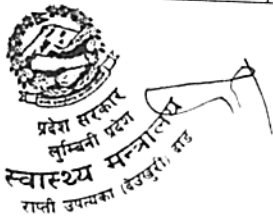 प्रदेश सरकार
लुम्बिनी प्रदेश
स्वास्थ्य मन्त्रालय
राप्ती उपत्यका (देउखुरी) दाङ